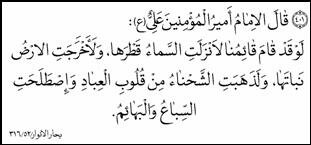 (٤٠١) قَالَ الْاِمَامُ اَمِيرُ الْمُؤْمِنِينَ عَلِيٌّ (ع):
لَوْ قَدْ قَامَ قَائِمُنَا لَاَنْزَلَتِ السَّمَاءُ قَطْرَهَا، وَلَاَخْرَجَتِ الْاَرْضُ
نَبَاتَهَا، وَلَذَهَبَتِ الشَّحْنَاءُ مِنْ قُلُوبِ الْعِبَادِ وَاِصْطَلَحَتِ
السِّبَاعُ وَالْبَهَائِمُ.
بحار الانوار: ٣١٦/٥٢